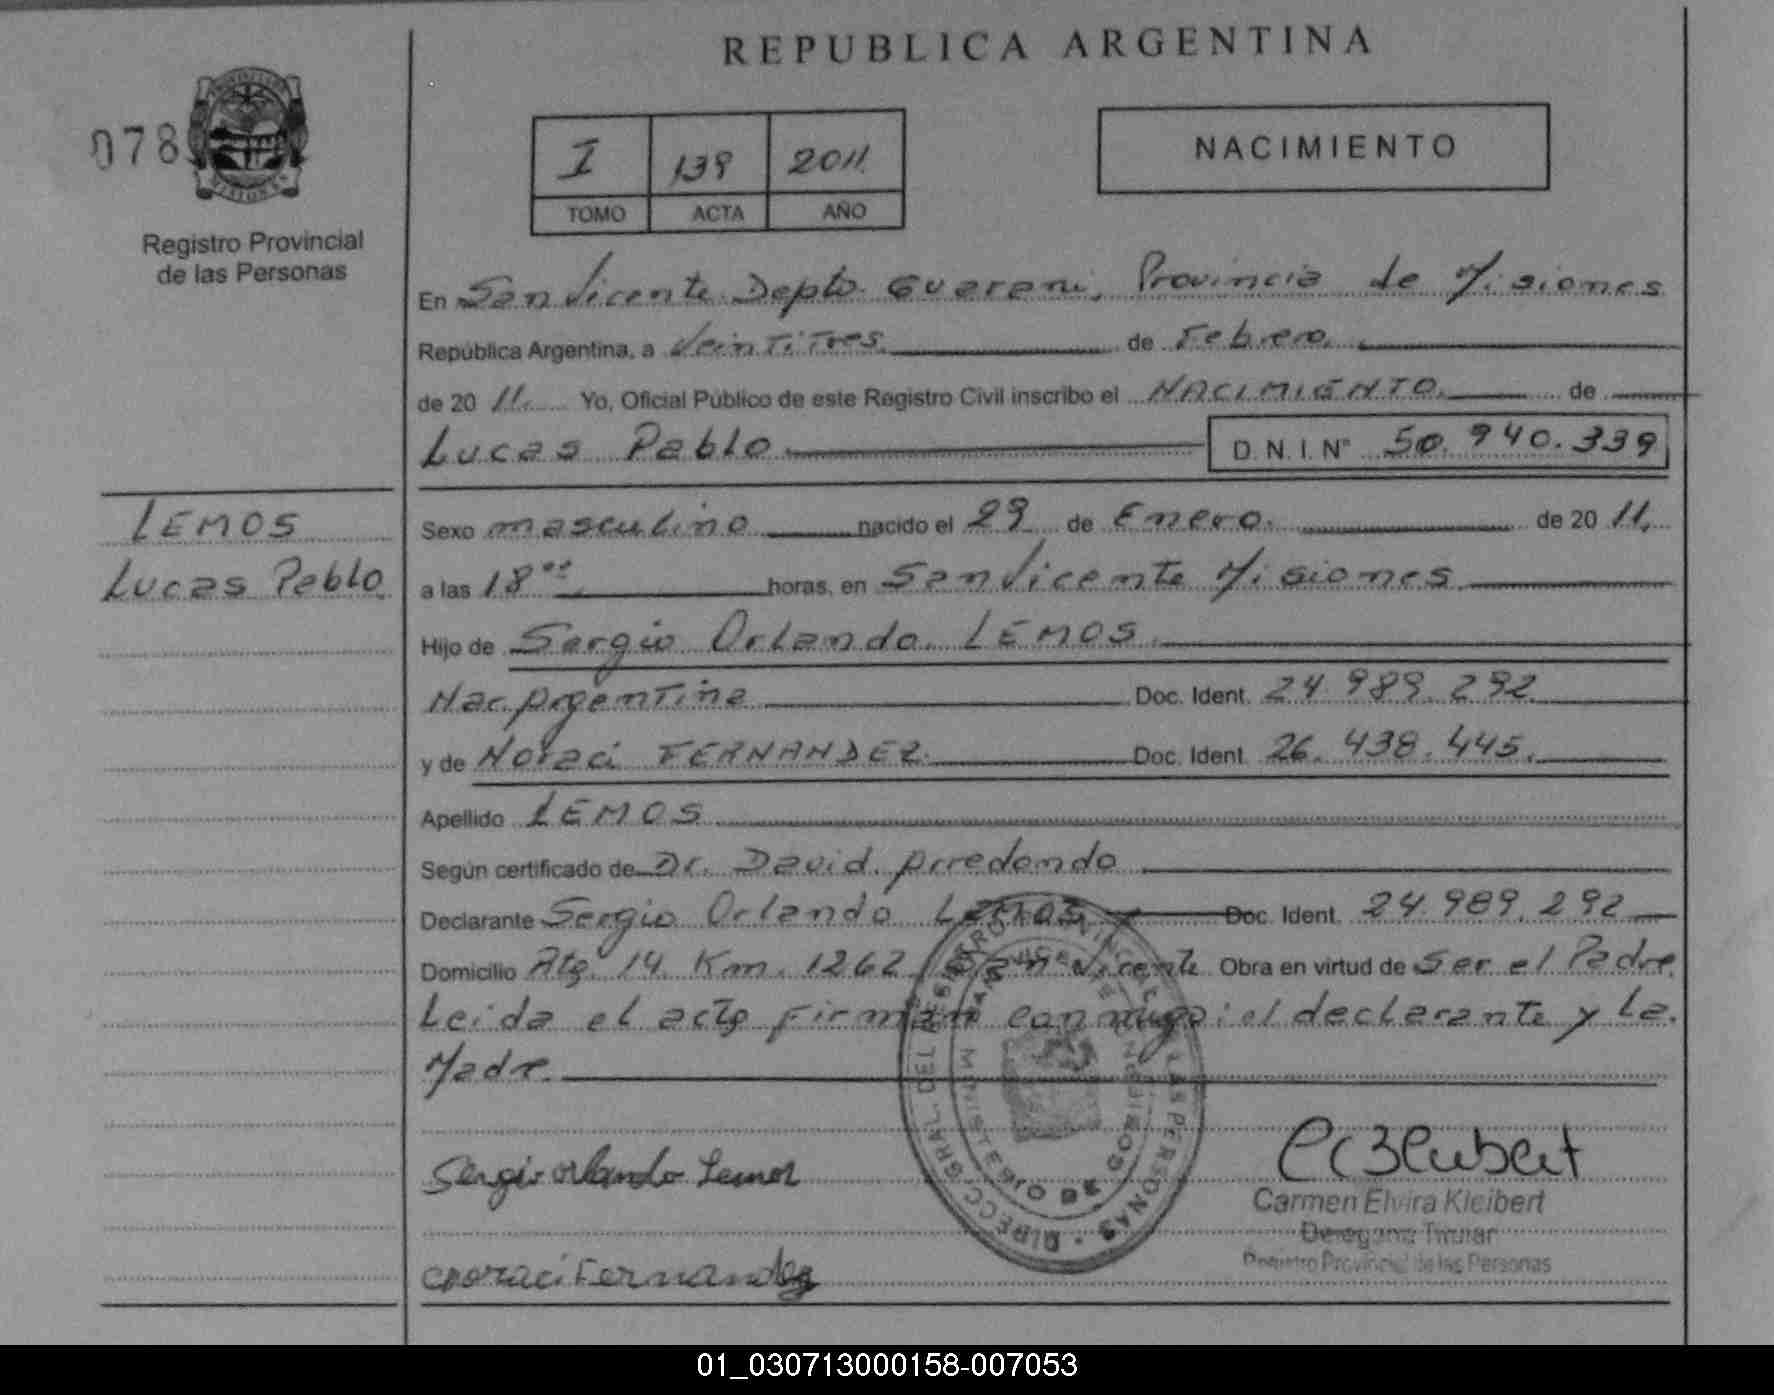 REPUBLICA ARGENTINA
078
Registro Provincial
de las Personas
I 139 2011
TOMO ACTA AÑO
NACIMIENTO
En San Vicente Depto Guarani, Provincia de Misiones
República Argentina, a Veintitres de Febrero.
de 20 11. Yo, Oficial Público de este Registro Civil inscribo el NACIMIENTO. de
Lucas Pablo D.N.I.Nº 50.940.339
LEMOS
Lucas Pablo.
Sexo masculino nacido el 29 de Enero. de 20 11.
a las 18 horas, en San Vicente Misiones
Hijo de Sergio Orlando LEMOS
Nac. Argentina Doc. Ident. 24.989.292
y de Noraci FERNANDEZ Doc. Ident. 26.438.445.
Apellido LEMOS
Según certificado de Dr. David Arredondo
Declarante Sergio Orlando LEMOS Doc. Ident. 24.989.292
Domicilio 14 Km. 1262 San Vicente Obra en virtud de Ser el Padre.
Leida el acta firman conmigo: el declarante y La.
Madre.
Sergio orlando Lemos
Noraci Fernandez
Carmen Elvira Kleibert
Delegada Titular
Registro Provincial de las Personas
01_030713000158-007053